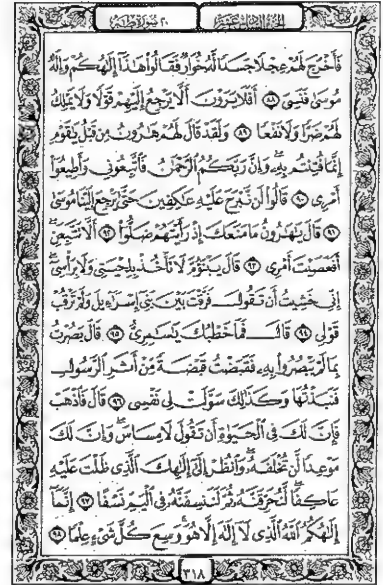 الجزء السادس عشر ٢٠ سورة طه
فَأَخْرَجَ لَهُمْ عِجْلًا جَسَدًا لَّهُۥ خُوَارٌ فَقَالُوا۟ هَٰذَآ إِلَٰهُكُمْ وَإِلَٰهُ
مُوسَىٰ فَنَسِىَ ٨٨ أَفَلَا يَرَوْنَ أَلَّا يَرْجِعُ إِلَيْهِمْ قَوْلًا وَلَا يَمْلِكُ
لَهُمْ ضَرًّا وَلَا نَفْعًا ٨٩ وَلَقَدْ قَالَ لَهُمْ هَٰرُونُ مِن قَبْلُ يَٰقَوْمِ
إِنَّمَا فُتِنتُم بِهِۦ وَإِنَّ رَبَّكُمُ ٱلرَّحْمَٰنُ فَٱتَّبِعُونِى وَأَطِيعُوٓا۟
أَمْرِى ٩٠ قَالُوا۟ لَن نَّبْرَحَ عَلَيْهِ عَٰكِفِينَ حَتَّىٰ يَرْجِعَ إِلَيْنَا مُوسَىٰ
٩١ قَالَ يَٰهَٰرُونُ مَا مَنَعَكَ إِذْ رَأَيْتَهُمْ ضَلُّوٓا۟ ٩٢ أَلَّا تَتَّبِعَنِ
أَفَعَصَيْتَ أَمْرِى ٩٣ قَالَ يَبْنَؤُمَّ لَا تَأْخُذْ بِلِحْيَتِى وَلَا بِرَأْسِىٓ
إِنِّى خَشِيتُ أَن تَقُولَ فَرَّقْتَ بَيْنَ بَنِىٓ إِسْرَٰٓءِيلَ وَلَمْ تَرْقُبْ
قَوْلِى ٩٤ قَالَ فَمَا خَطْبُكَ يَٰسَٰمِرِىُّ ٩٥ قَالَ بَصُرْتُ
بِمَا لَمْ يَبْصُرُوا۟ بِهِۦ فَقَبَضْتُ قَبْضَةً مِّنْ أَثَرِ ٱلرَّسُولِ
فَنَبَذْتُهَا وَكَذَٰلِكَ سَوَّلَتْ لِى نَفْسِى ٩٦ قَالَ فَٱذْهَبْ
فَإِنَّ لَكَ فِى ٱلْحَيَوٰةِ أَن تَقُولَ لَا مِسَاسَ وَإِنَّ لَكَ
مَوْعِدًا لَّن تُخْلَفَهُۥ وَٱنظُرْ إِلَىٰٓ إِلَٰهِكَ ٱلَّذِى ظَلْتَ عَلَيْهِ
عَاكِفًا لَّنُحَرِّقَنَّهُۥ ثُمَّ لَنَنسِفَنَّهُۥ فِى ٱلْيَمِّ نَسْفًا ٩٧ إِنَّمَآ
إِلَٰهُكُمُ ٱللَّهُ ٱلَّذِى لَآ إِلَٰهَ إِلَّا هُوَ وَسِعَ كُلَّ شَىْءٍ عِلْمًا ٩٨
٣١٨